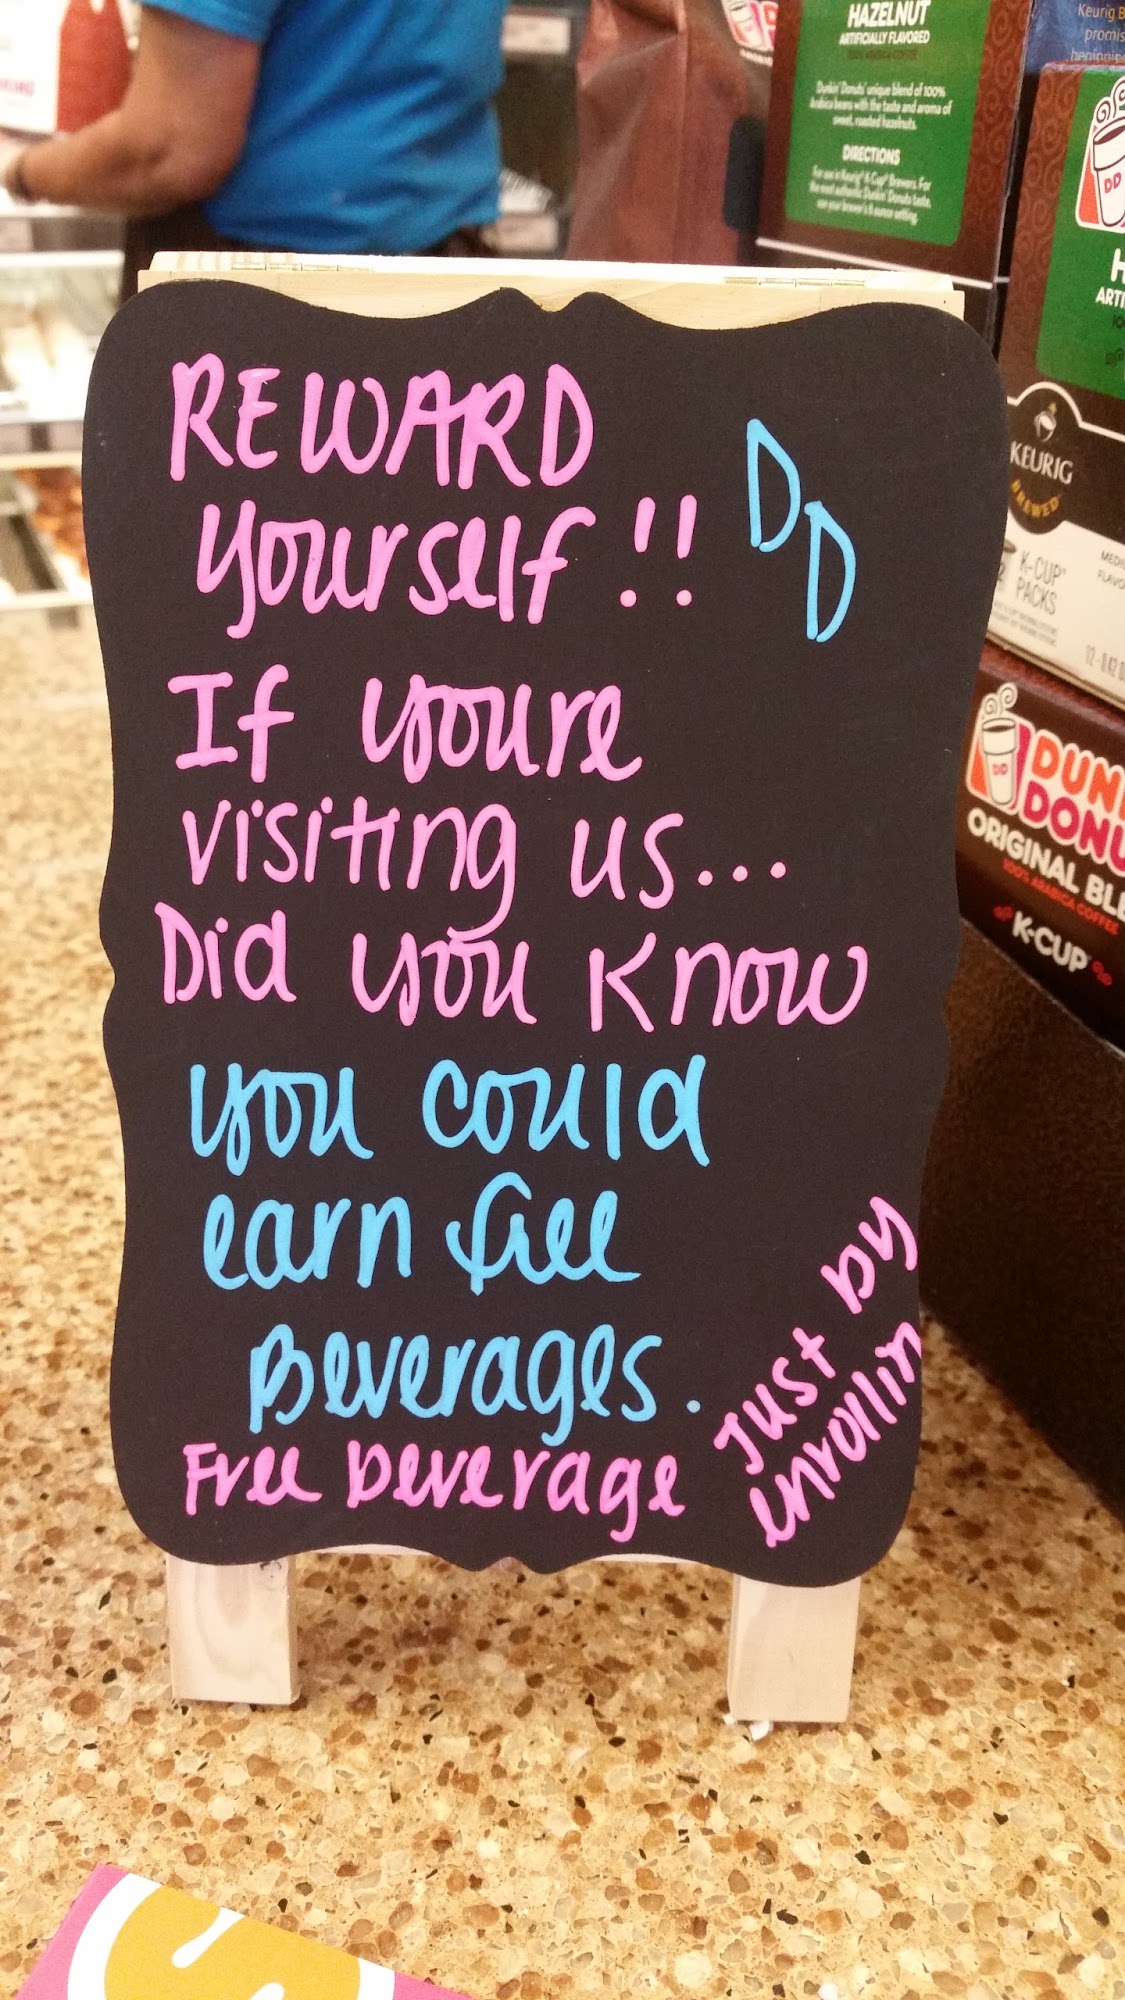 REWARD
yourself!!
DD
If youre
visiting us...
Did you know
you could
earn free
Beverages.
Free beverage
Just by
enrollin
HAZELNUT
ARTIFICIALLY FLAVORED
100% ARABICA COFFEE
Dunkin' Donuts' unique blend of 100%
Arabica beans with the taste and aroma of
sweet, roasted hazelnuts.
DIRECTIONS
For use in Keurig® K-Cup® Brewers. For
the most authentic Dunkin' Donuts taste,
use your brewer's 8 ounce setting.
Keurig B
promis
beginning
DD
H
ARTI
KEURIG
BREWED
K-CUP®
PACKS
MEDI
FLAVO
DD
DUN
DONU
ORIGINAL BLE
100% ARABICA COFFEE
K-CUP